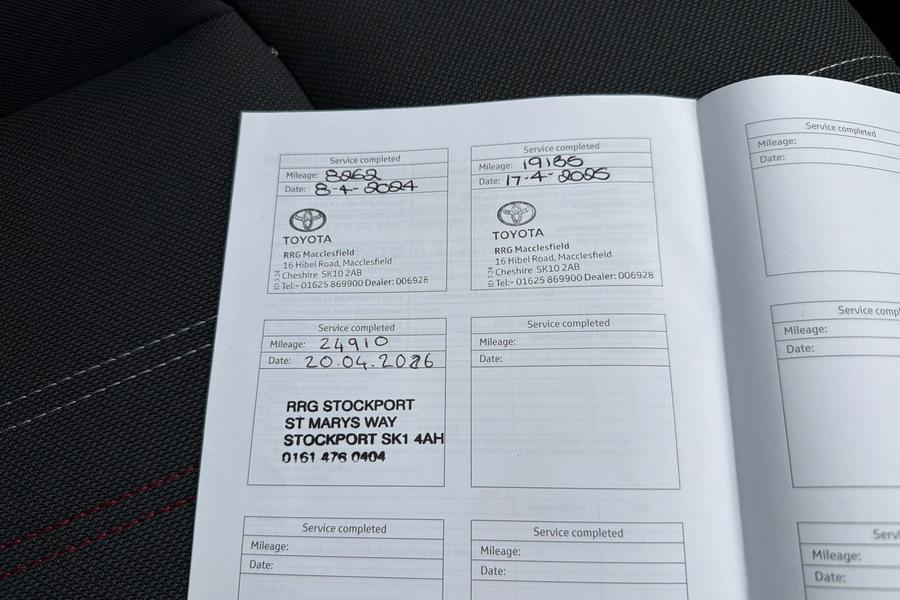 Service completed
Mileage: 8262
Date: 8-4-2024
TOYOTA
RRG Macclesfield
16 Hibel Road, Macclesfield
Cheshire SK10 2AB
Tel:- 01625 869900 Dealer: 006928
Service completed
Mileage: 19186
Date: 17-4-2025
TOYOTA
RRG Macclesfield
16 Hibel Road, Macclesfield
Cheshire SK10 2AB
Tel:- 01625 869900 Dealer: 006928
Service completed
Mileage: 24910
Date: 20.04.2026
RRG STOCKPORT
ST MARYS WAY
STOCKPORT SK1 4AH
0161 476 0404
Service completed
Mileage:
Date:
Service completed
Mileage:
Date:
Service completed
Mileage:
Date:
Service completed
Mileage:
Date:
Service comp
Mileage:
Date:
Servi
Mileage:
Date: